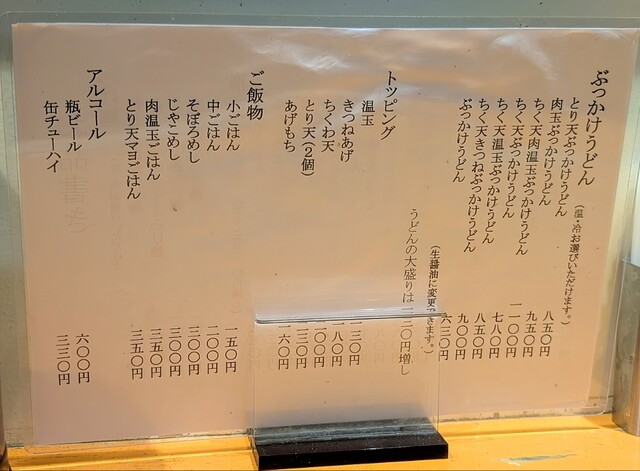 ぶっかけうどん(温・冷お選びいただけます。)
とり天ぶっかけうどん 八五〇円
肉玉ぶっかけうどん 九五〇円
ちく天肉温玉ぶっかけうどん 一一〇〇円
ちく天ぶっかけうどん 七八〇円
ちく天温玉ぶっかけうどん 八五〇円
ちく天きつねぶっかけうどん 九〇〇円
ぶっかけうどん 六三〇円
(生醤油に変更できます。)
うどんの大盛りは 増し
トッピング
温玉 一三〇円
きつねあげ 一八〇円
ちくわ天
とり天(2個)
あげもち 一六〇円
ご飯物
小ごはん 一五〇円
中ごはん 二〇〇円
そぼろめし 三〇〇円
じゃこめし 三〇〇円
肉温玉ごはん 三五〇円
とり天マヨごはん 三五〇円
アルコール
瓶ビール 六〇〇円
缶チューハイ 三三〇円